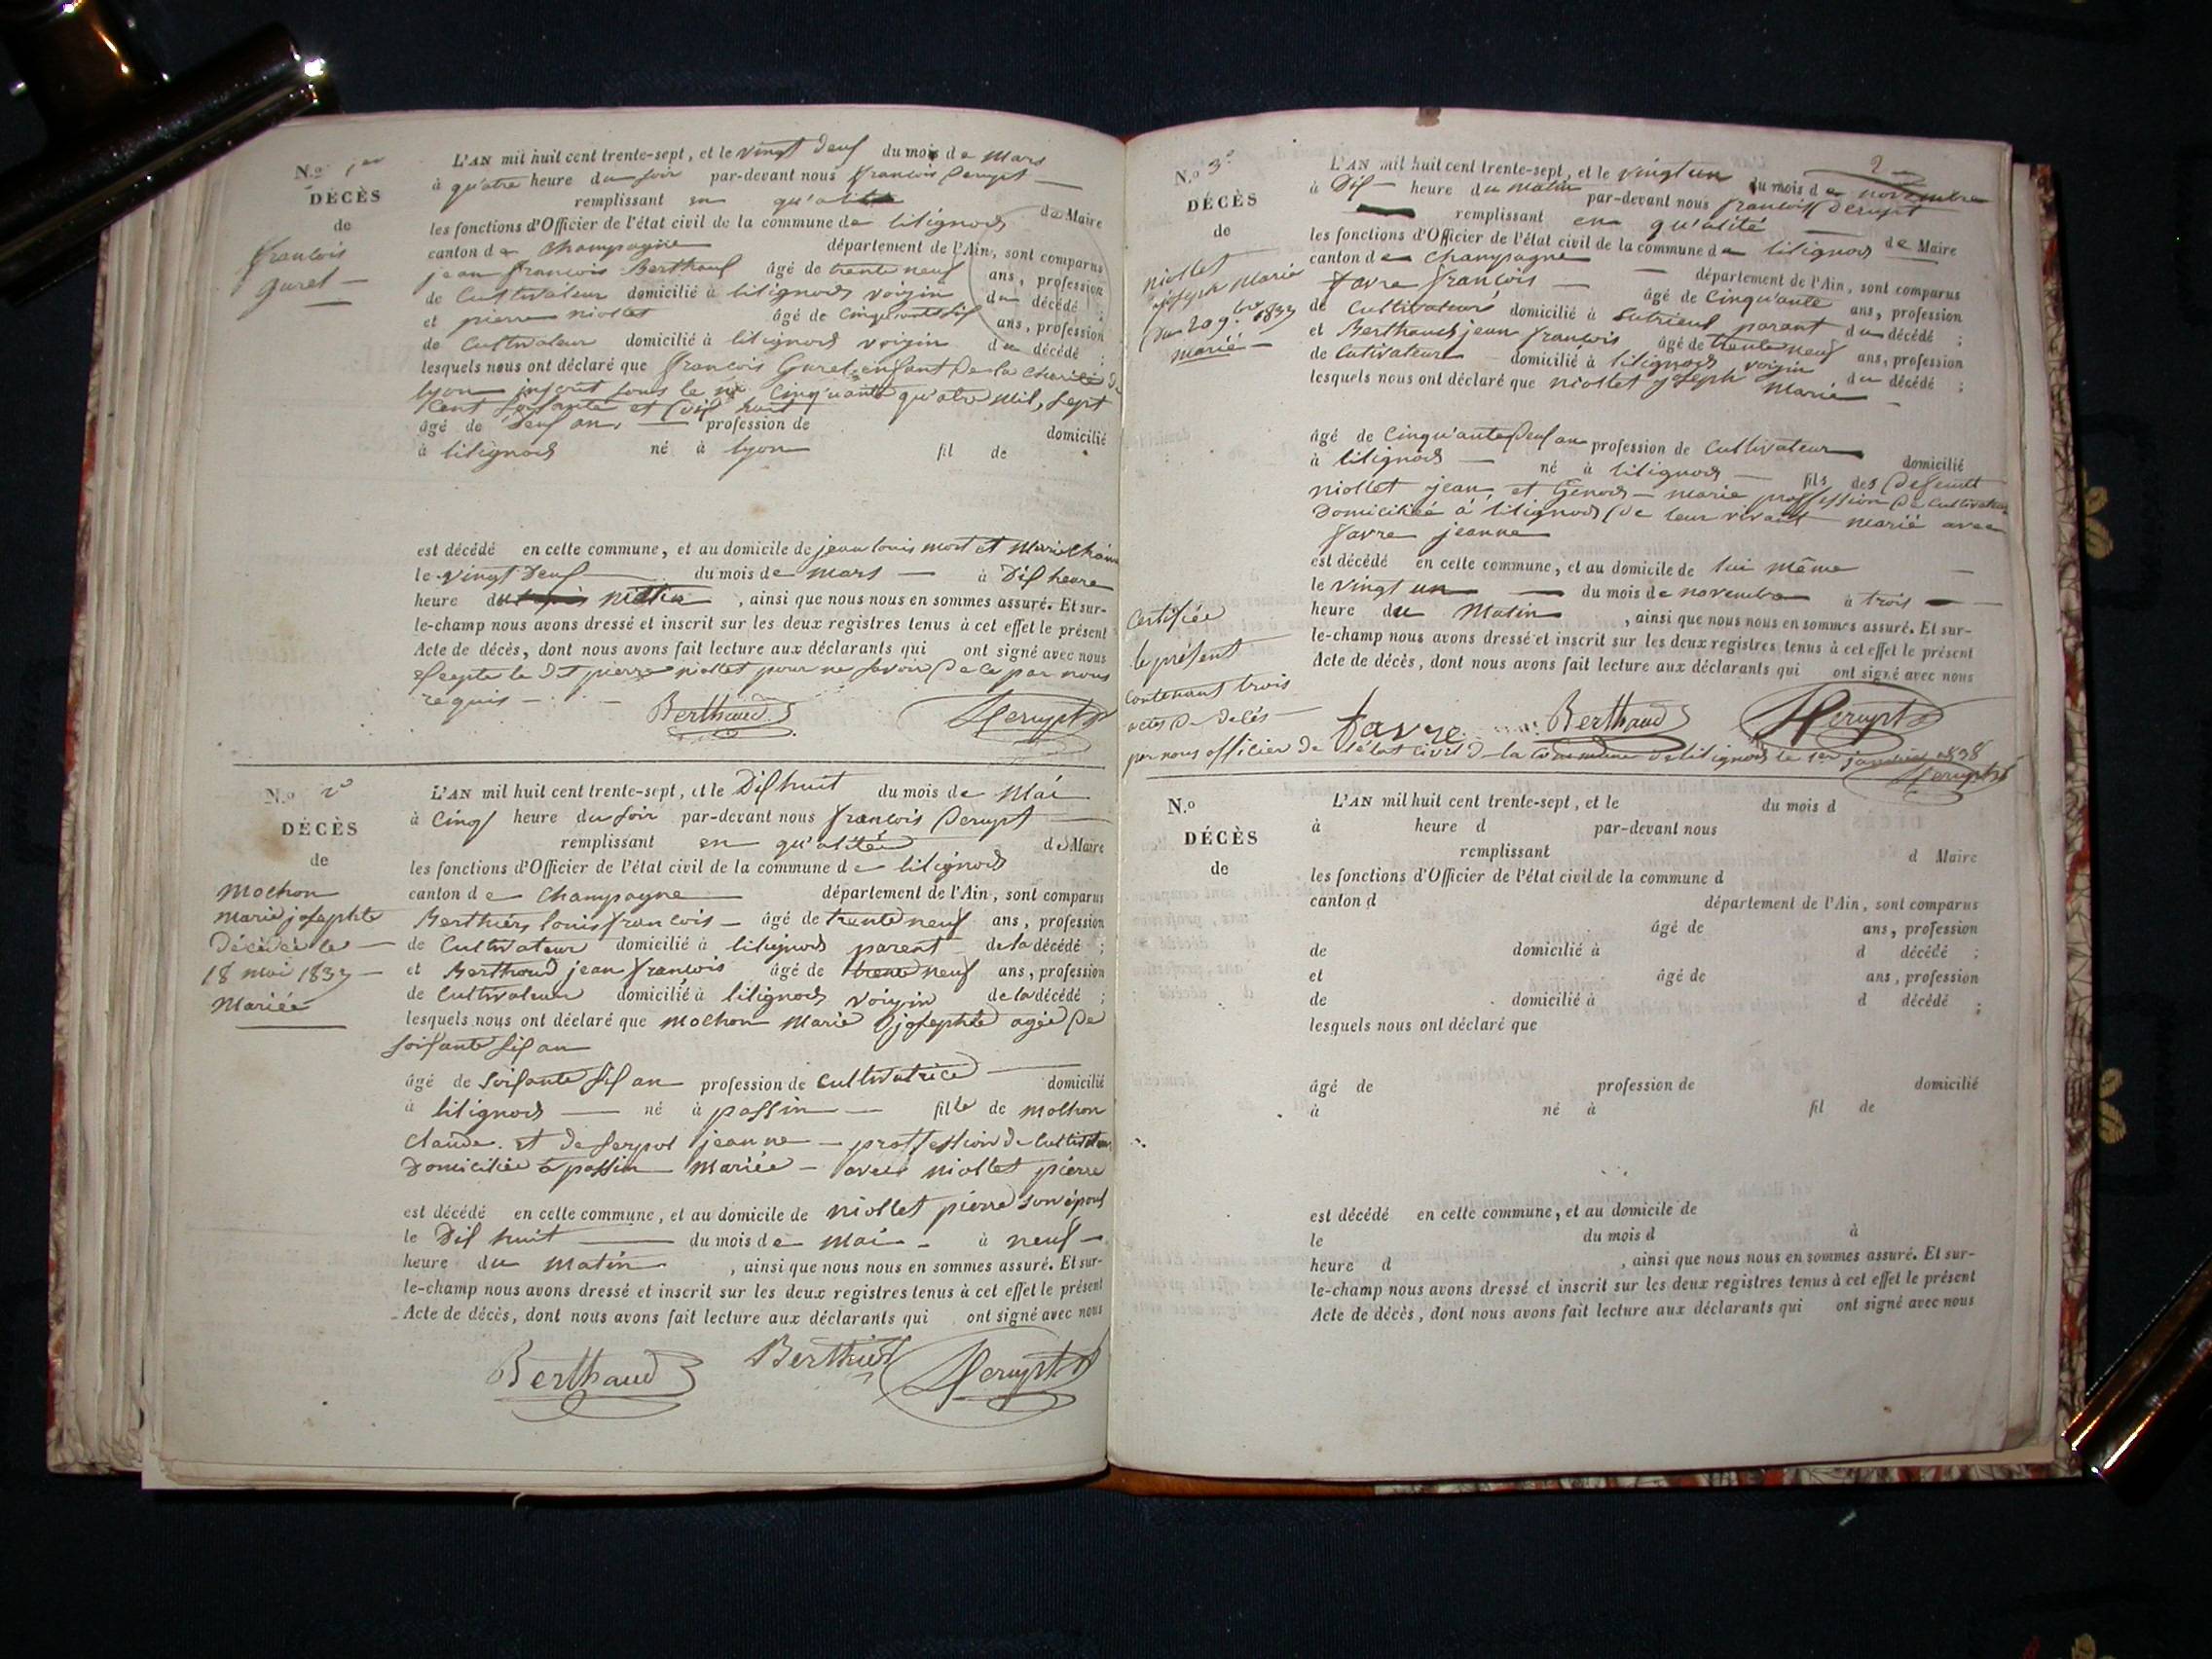 N.º 1er
DÉCÈS
de
françois
gurel
L'AN mil huit cent trente-sept, et le vingt deux du mois de mars
à qu'atre heure du soir par-devant nous françois Derupt
remplissant en qu'alité de Maire
les fonctions d'Officier de l'état civil de la commune de lilignod
canton de Champagne département de l'Ain, sont comparus
jean françois Berthaud âgé de trente neuf ans, profession
de Cultivateur domicilié à lilignods voizin du décédé ;
et pierre niollet âgé de Cinquante six ans, profession
de Cultivateur domicilié à lilignods voizin du décédé ;
lesquels nous ont déclaré que françois Gurel enfant de la Charité de
lyon inscrit sous le no Cinq'uante qu'atre mil, sept
Cent soisante et dix huit
âgé de deux an profession de domicilié
à lilignods né à lyon fil de
est décédé en cette commune, et au domicile de jean louis mort et Marie
le vingt Deux du mois de mars à Dix heure
heure du matin , ainsi que nous nous en sommes assuré. Et sur-
le-champ nous avons dressé et inscrit sur les deux registres tenus à cet effet le présent
Acte de décès, dont nous avons fait lecture aux déclarants qui ont signé avec nous
excepte le Dit pierre niollet pour ne savoir de ce par nous
requis
Berthaud Derupt
N.º 2e
DÉCÈS
de
Mochon
Marie josephte
Décédée le
18 mai 1837
Mariée
L'AN mil huit cent trente-sept, et le Dix huit du mois de Mai
à Cinq heure du soir par-devant nous françois Derupt
remplissant en qu'alité de Maire
les fonctions d'Officier de l'état civil de la commune de lilignods
canton de Champagne département de l'Ain, sont comparus
Berthier louis françois âgé de trente neuf ans, profession
de Cultivateur domicilié à lilignods parent de la décédé ;
et Berthaud jean françois âgé de trente neuf ans, profession
de Cultivateur domicilié à lilignods voizin de la décédé ;
lesquels nous ont déclaré que Mochon Marie josephte agée de
soisante six an
âgé de Soisante six an profession de Cultivatrice domicilié
à lilignods né à passin fille de mochon
Claude et de serpol jeanne proffession de Cultivateur
Domiciliée à passin Mariée avec niollet pierre
est décédé en cette commune, et au domicile de niollet pierre son époux
le Dix huit du mois de mai à neuf
heure du matin , ainsi que nous nous en sommes assuré. Et sur-
le-champ nous avons dressé et inscrit sur les deux registres tenus à cet effet le présent
Acte de décès, dont nous avons fait lecture aux déclarants qui ont signé avec nous
Berthaud Berthier Derupt
2
N.º 3e
DÉCÈS
de
niollet
joseph Marie
1837
marié
L'AN mil huit cent trente-sept, et le vingt un du mois de novembre
à Dix heure du matin par-devant nous françois Derupt
remplissant en qu'alité de Maire
les fonctions d'Officier de l'état civil de la commune de lilignods
canton de Champagne département de l'Ain, sont comparus
favre françois âgé de Cinqu'ante ans, profession
de Cultivateur domicilié à Sutrieux parant du décédé ;
et Berthaud jean françois âgé de trente neuf ans, profession
de Cutivateur domicilié à lilignods voizin du décédé ;
lesquels nous ont déclaré que niollet joseph Marie
âgé de Cinqu'ante deux an profession de Cultivateur domicilié
à lilignods né à lilignods fils des Defeunt
niollet jean et Genod marie proffession de Cultivateur
Domiciliée à lilignods de leur vivant marié avec
favre jeanne
est décédé en cette commune, et au domicile de lui même
le vingt un du mois de novembre à trois
heure du Matin , ainsi que nous nous en sommes assuré. Et sur-
le-champ nous avons dressé et inscrit sur les deux registres tenus à cet effet le présent
Acte de décès, dont nous avons fait lecture aux déclarants qui ont signé avec nous
favre Berthaud Derupt
Certifiée
le présent
contenant trois
actes de décès
par nous officier de l'état civil de la Commune de lilignods le 1er janvier 1838
Derupt
N.º
DÉCÈS
de
L'AN mil huit cent trente-sept, et le du mois d
à heure d par-devant nous
remplissant d Maire
les fonctions d'Officier de l'état civil de la commune d
canton d département de l'Ain, sont comparus
âgé de ans, profession
de domicilié à d décédé ;
et âgé de ans, profession
de domicilié à d décédé ;
lesquels nous ont déclaré que
âgé de profession de domicilié
à né à fil de
est décédé en cette commune, et au domicile de
le du mois d à
heure d , ainsi que nous nous en sommes assuré. Et sur-
le-champ nous avons dressé et inscrit sur les deux registres tenus à cet effet le présent
Acte de décès, dont nous avons fait lecture aux déclarants qui ont signé avec nous